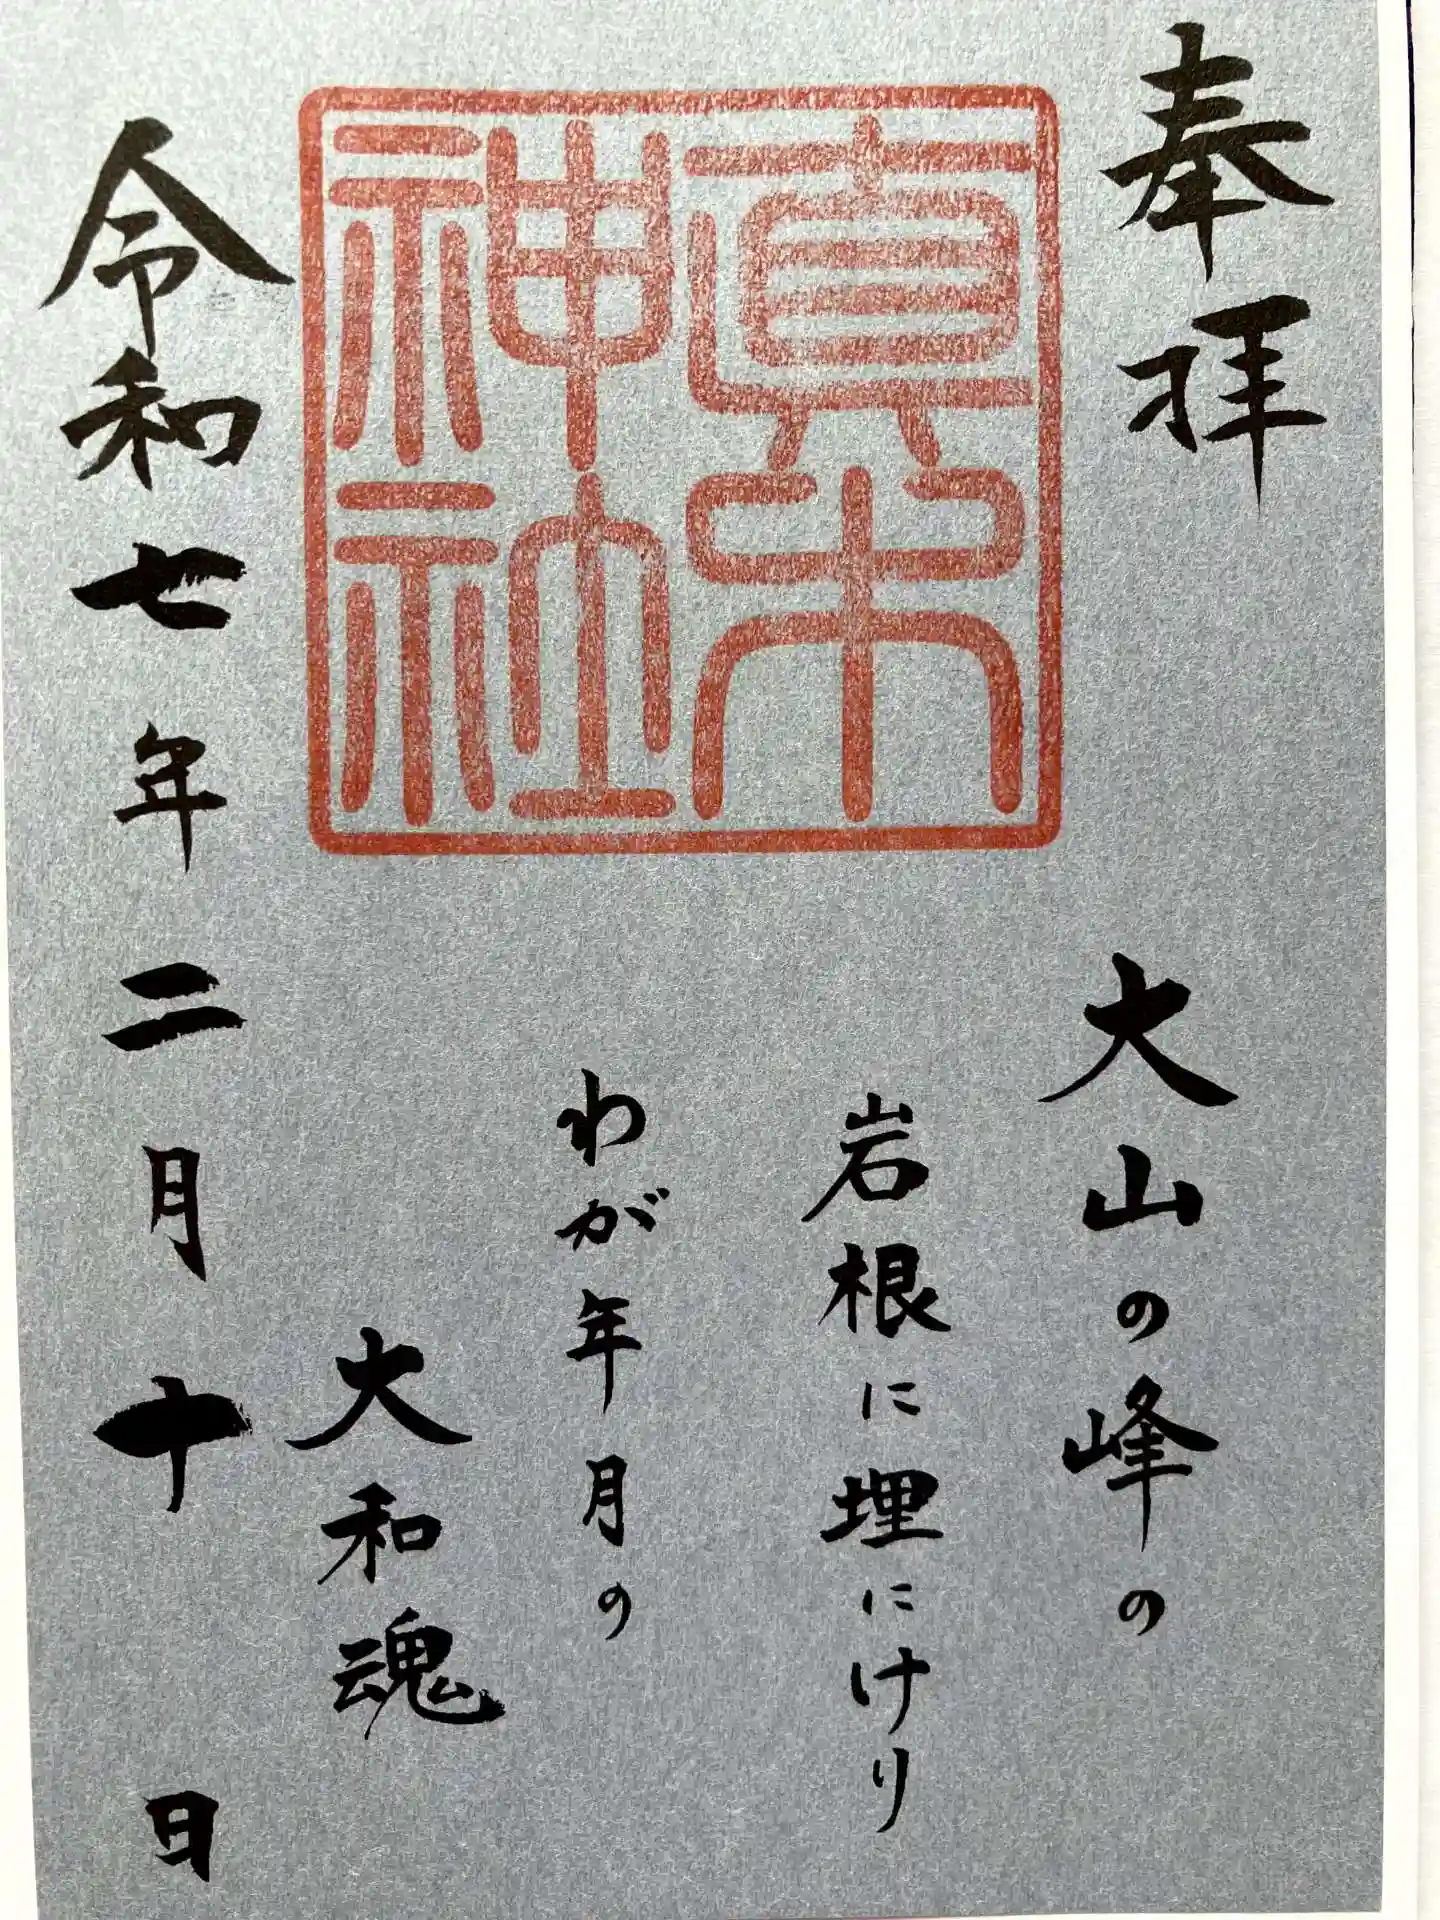 奉拝
真木
神社
大山の峰の
岩根に埋にけり
わが年月の
大和魂
令和七年二月十日